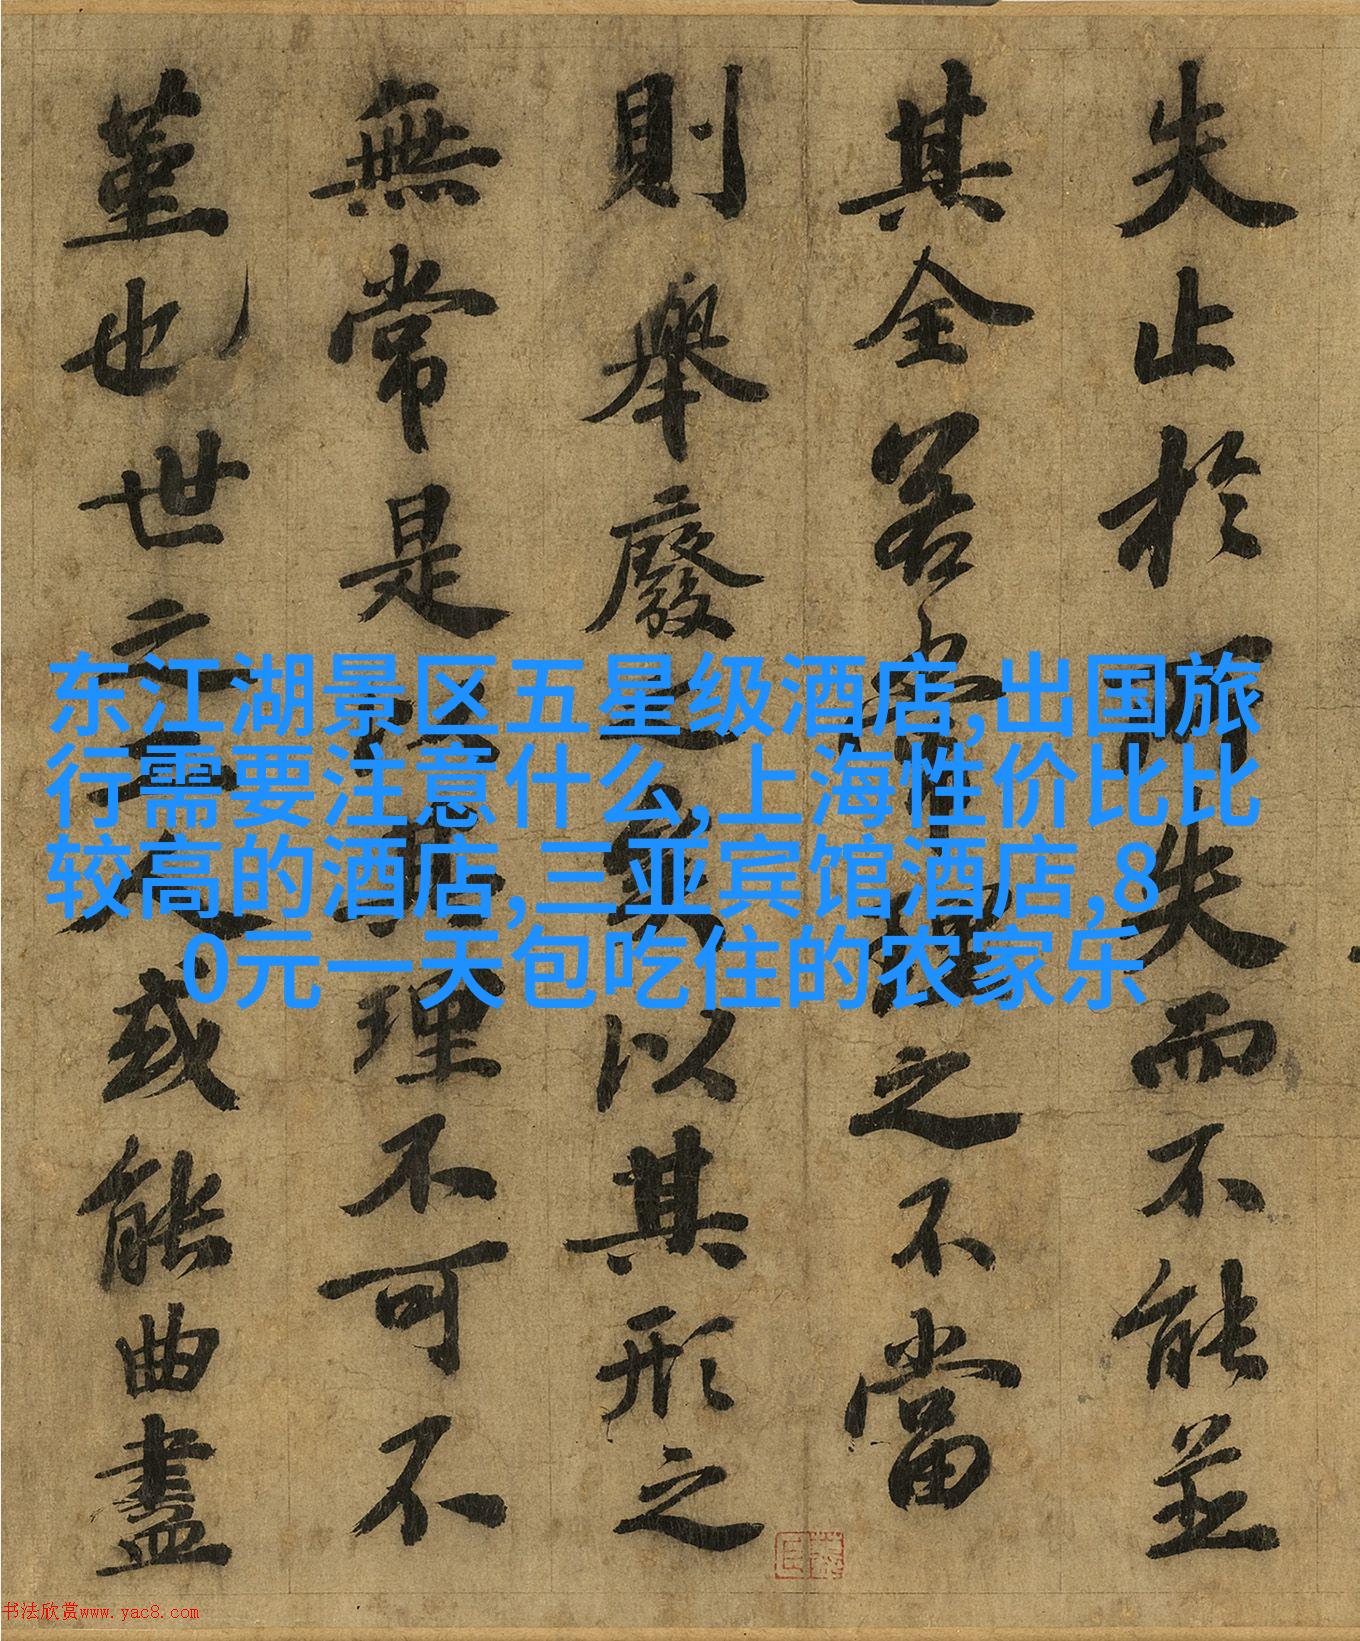 失止於所失而不能並
其全若常理之不當
則舉廢之矣以其形之
無常是以其理不可不
堇也世之工人或能曲盡
东江湖景区五星级酒店,出国旅
行需要注意什么,上海性价比比
较高的酒店,三亚宾馆酒店,8
0元一天包吃住的农家乐
书法欣赏www.yac8.com